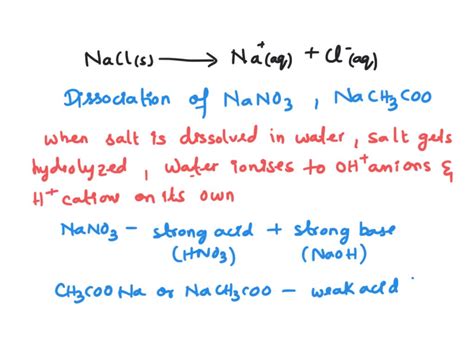 NaCl(s) ⟶ Na⁺(aq) + Cl⁻(aq)
Dissociation of NaNO₃ , NaCH₃COO
when salt is dissolved in water , salt gets
hydrolyzed , Water ionises to OH⁺ anions &
H⁺ cation on its own
NaNO₃ – strong acid + strong base
(HNO₃) (NaOH)
CH₃COONa or NaCH₃COO – weak acid